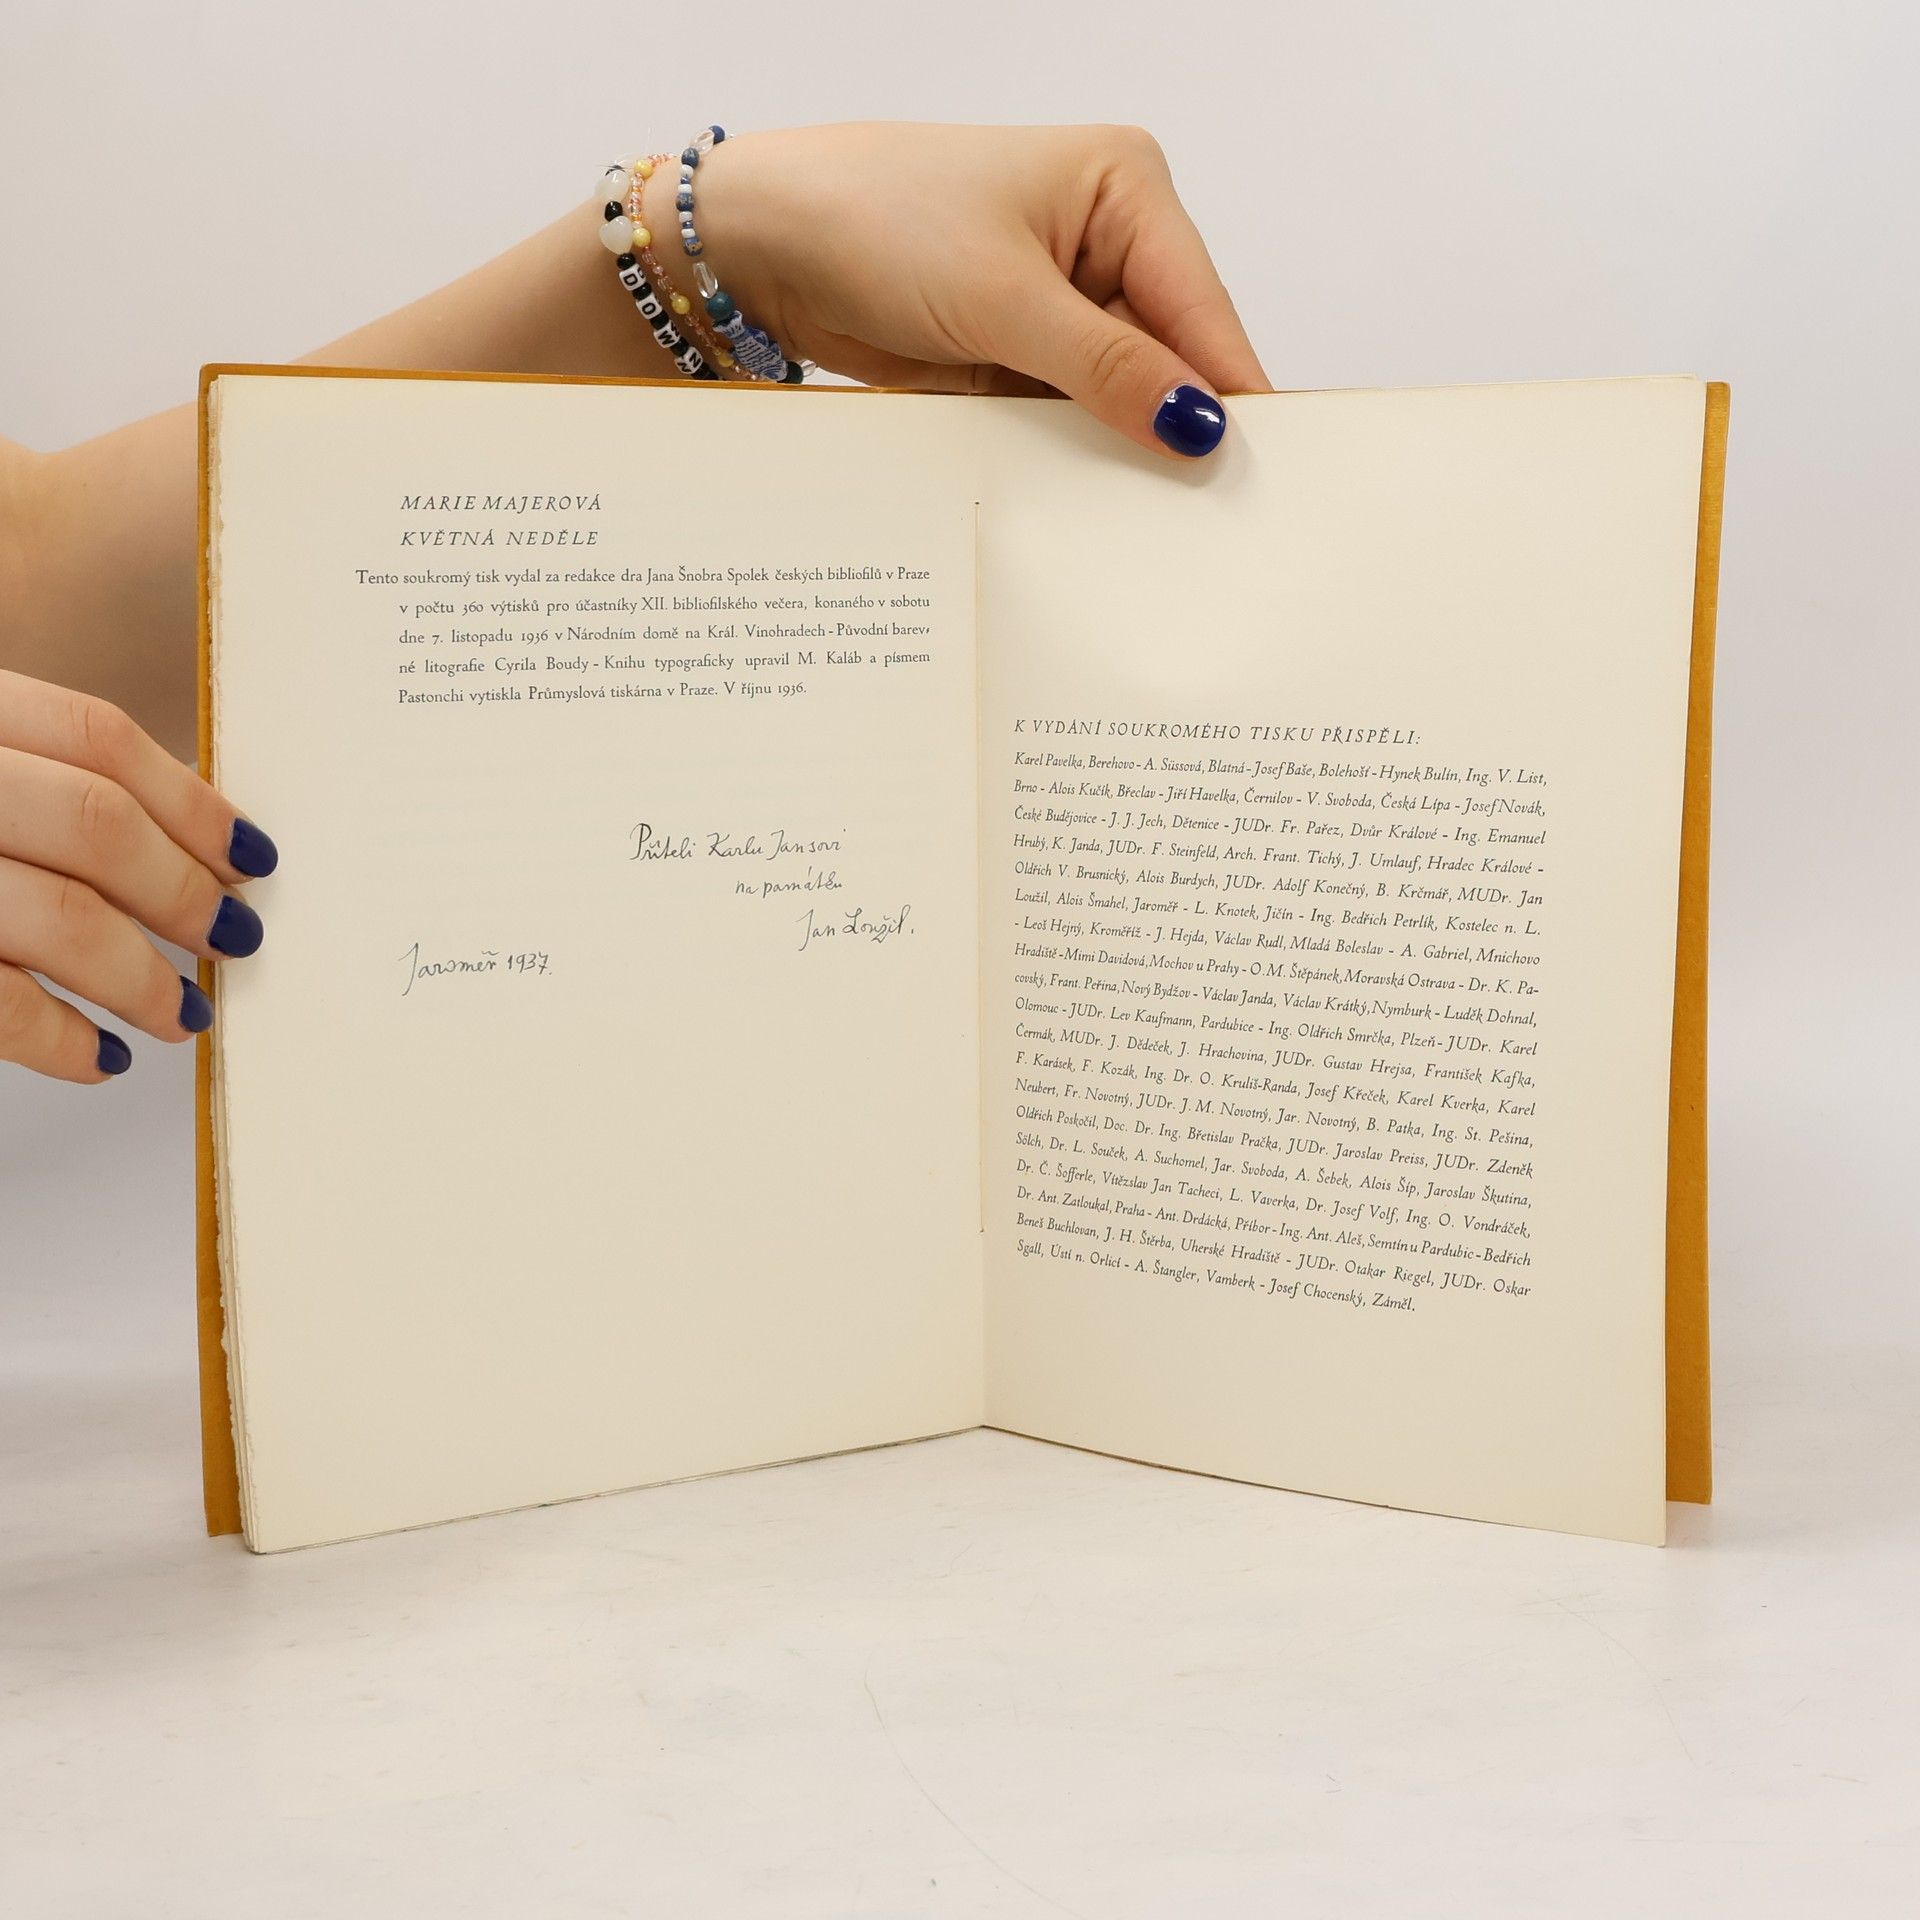 DOWN
MARIE MAJEROVÁ
KVĚTNÁ NEDĚLE
Tento soukromý tisk vydal za redakce dra Jana Šnobra Spolek českých bibliofilů v Praze
v počtu 360 výtisků pro účastníky XII. bibliofilského večera, konaného v sobotu
dne 7. listopadu 1936 v Národním domě na Král. Vinohradech - Původní barev-
né litografie Cyrila Boudy - Knihu typograficky upravil M. Kaláb a písmem
Pastonchi vytiskla Průmyslová tiskárna v Praze. V říjnu 1936.
Příteli Karlu Jansovi
na památku
Jan Loužil.
Jaroměř 1937.
K VYDÁNÍ SOUKROMÉHO TISKU PŘISPĚLI:
Karel Pavelka, Berehovo - A. Süssová, Blatná - Josef Baše, Bolehošť - Hynek Bulín, Ing. V. List,
Brno - Alois Kučík, Břeclav - Jiří Havelka, Černilov - V. Svoboda, Česká Lípa - Josef Novák,
České Budějovice - J. J. Jech, Dětenice - JUDr. Fr. Pařez, Dvůr Králové - Ing. Emanuel
Hrubý, K. Janda, JUDr. F. Steinfeld, Arch. Frant. Tichý, J. Umlauf, Hradec Králové -
Oldřich V. Brusnický, Alois Burdych, JUDr. Adolf Konečný, B. Krčmář, MUDr. Jan
Loužil, Alois Šmahel, Jaroměř - L. Knotek, Jičín - Ing. Bedřich Petrlík, Kostelec n. L.
- Leoš Hejný, Kroměříž - J. Hejda, Václav Rudl, Mladá Boleslav - A. Gabriel, Mnichovo
Hradiště - Mimi Davidová, Mochov u Prahy - O. M. Štěpánek, Moravská Ostrava - Dr. K. Pa-
covský, Frant. Peřina, Nový Bydžov - Václav Janda, Václav Krátký, Nymburk - Luděk Dohnal,
Olomouc - JUDr. Lev Kaufmann, Pardubice - Ing. Oldřich Smrčka, Plzeň - JUDr. Karel
Čermák, MUDr. J. Dědeček, J. Hrachovina, JUDr. Gustav Hrejsa, František Kafka,
F. Karásek, F. Kozák, Ing. Dr. O. Kruliš-Randa, Josef Křeček, Karel Kverka, Karel
Neubert, Fr. Novotný, JUDr. J. M. Novotný, Jar. Novotný, B. Patka, Ing. St. Pešina,
Oldřich Poskočil, Doc. Dr. Ing. Břetislav Pračka, JUDr. Jaroslav Preiss, JUDr. Zdeněk
Sölch, Dr. L. Souček, A. Suchomel, Jar. Svoboda, A. Šebek, Alois Šíp, Jaroslav Škutina,
Dr. Č. Šofferle, Vítězslav Jan Tacheci, L. Vaverka, Dr. Josef Volf, Ing. O. Vondráček,
Dr. Ant. Zatloukal, Praha - Ant. Drdácká, Příbor - Ing. Ant. Aleš, Semtín u Pardubic - Bedřich
Beneš Buchlovan, J. H. Štěrba, Uherské Hradiště - JUDr. Otakar Riegel, JUDr. Oskar
Sgall, Ústí n. Orlicí - A. Štangler, Vamberk - Josef Chocenský, Záměl.